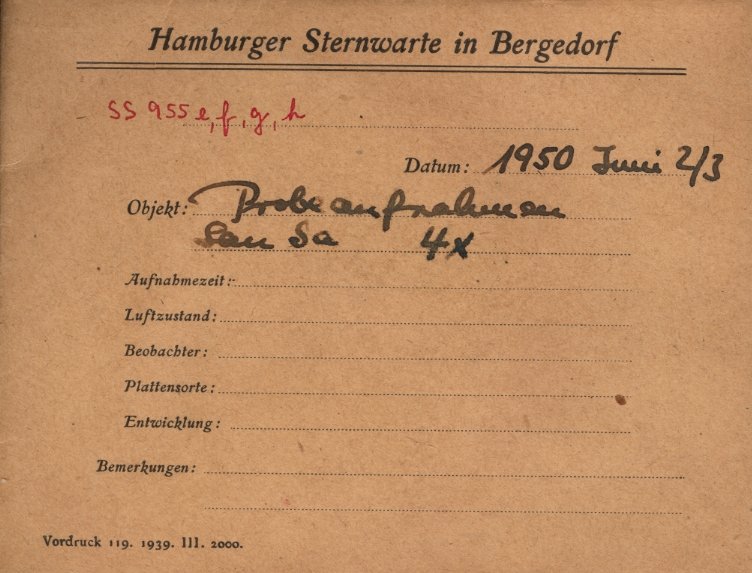 Hamburger Sternwarte in Bergedorf
SS 955 e, f, g, h
Datum: 1950 Juni 2/3
Objekt: Probeaufnahmen
4x
Aufnahmezeit:
Luftzustand:
Beobachter:
Plattensorte:
Entwicklung:
Bemerkungen:
Vordruck 119. 1939. III. 2000.